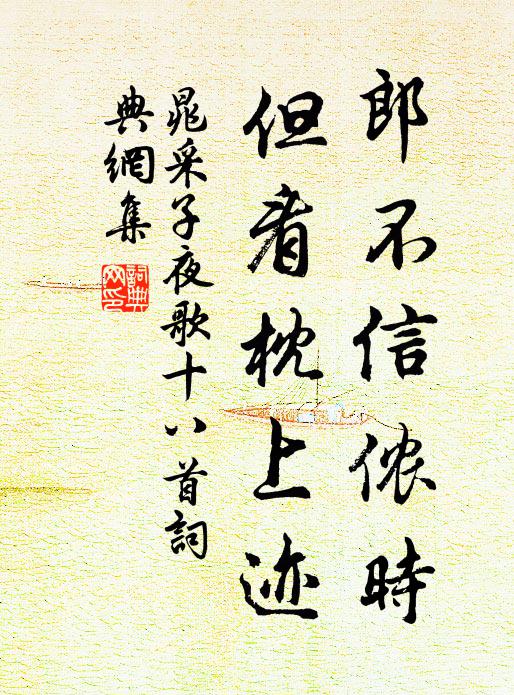 郎不信侬時
但看枕上迹
晁采子夜歌十八首詞
典網集
詞典
网印